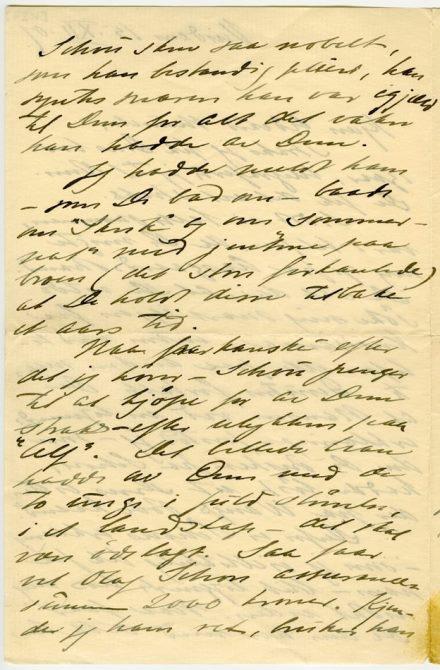 Schou skrev saa nobelt,
som han bestandig pleier, han
synths maaen han var gjæld
til Dem for alt det vakre
han hadde av Dem.
Jeg hadde meldt ham
– som De bad om – baade
om "Skrik" og om Sommer-
nat" med jentene paa
broen (det store forhanlede)
at De holdt disse tilbake
et aars tid.
Naa faar kanske – efter
det jeg hører – Schou penger
til at kjøpe for av Dem
straks – efter ulykken paa
"Alf". Det billede han
hadde av Dem med de
to unge i fuld
i et landskap – det skal
være ødelagt. Saa faar
vel Olaf Schou assurancen
summen 2000 kroner. Kjen-
der jeg ham ret, ønsker han